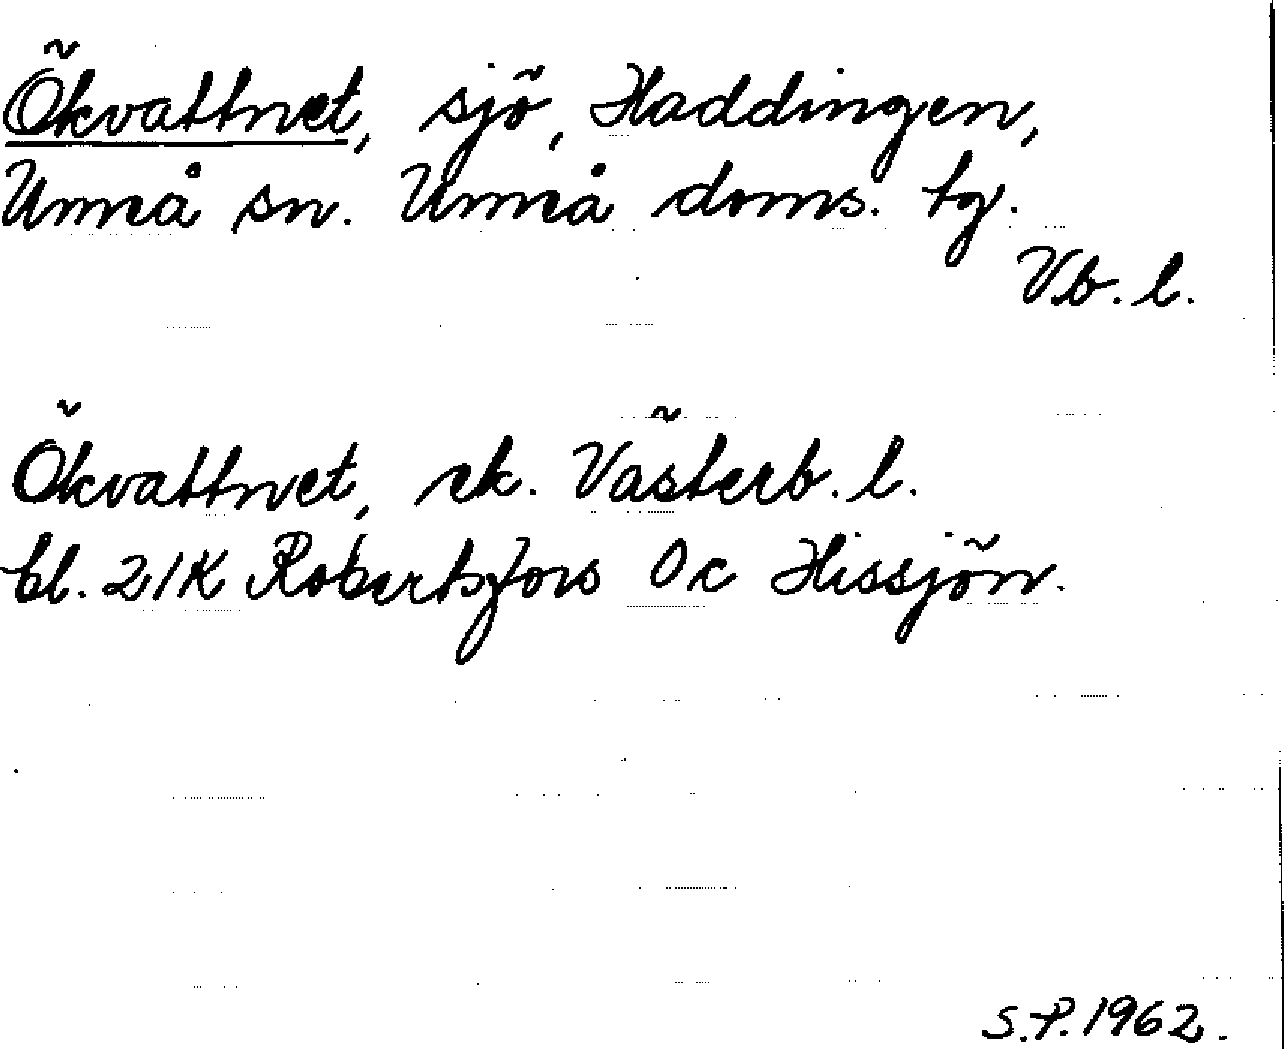 Ökvattnet, sjö, Haddingen,
Umeå sn. Umeå doms. tg.
Vb. l.
Ökvattnet, ek. Västerb. l.
bl. 21K Robertsfors 0c Hissjön.
S.P. 1962.